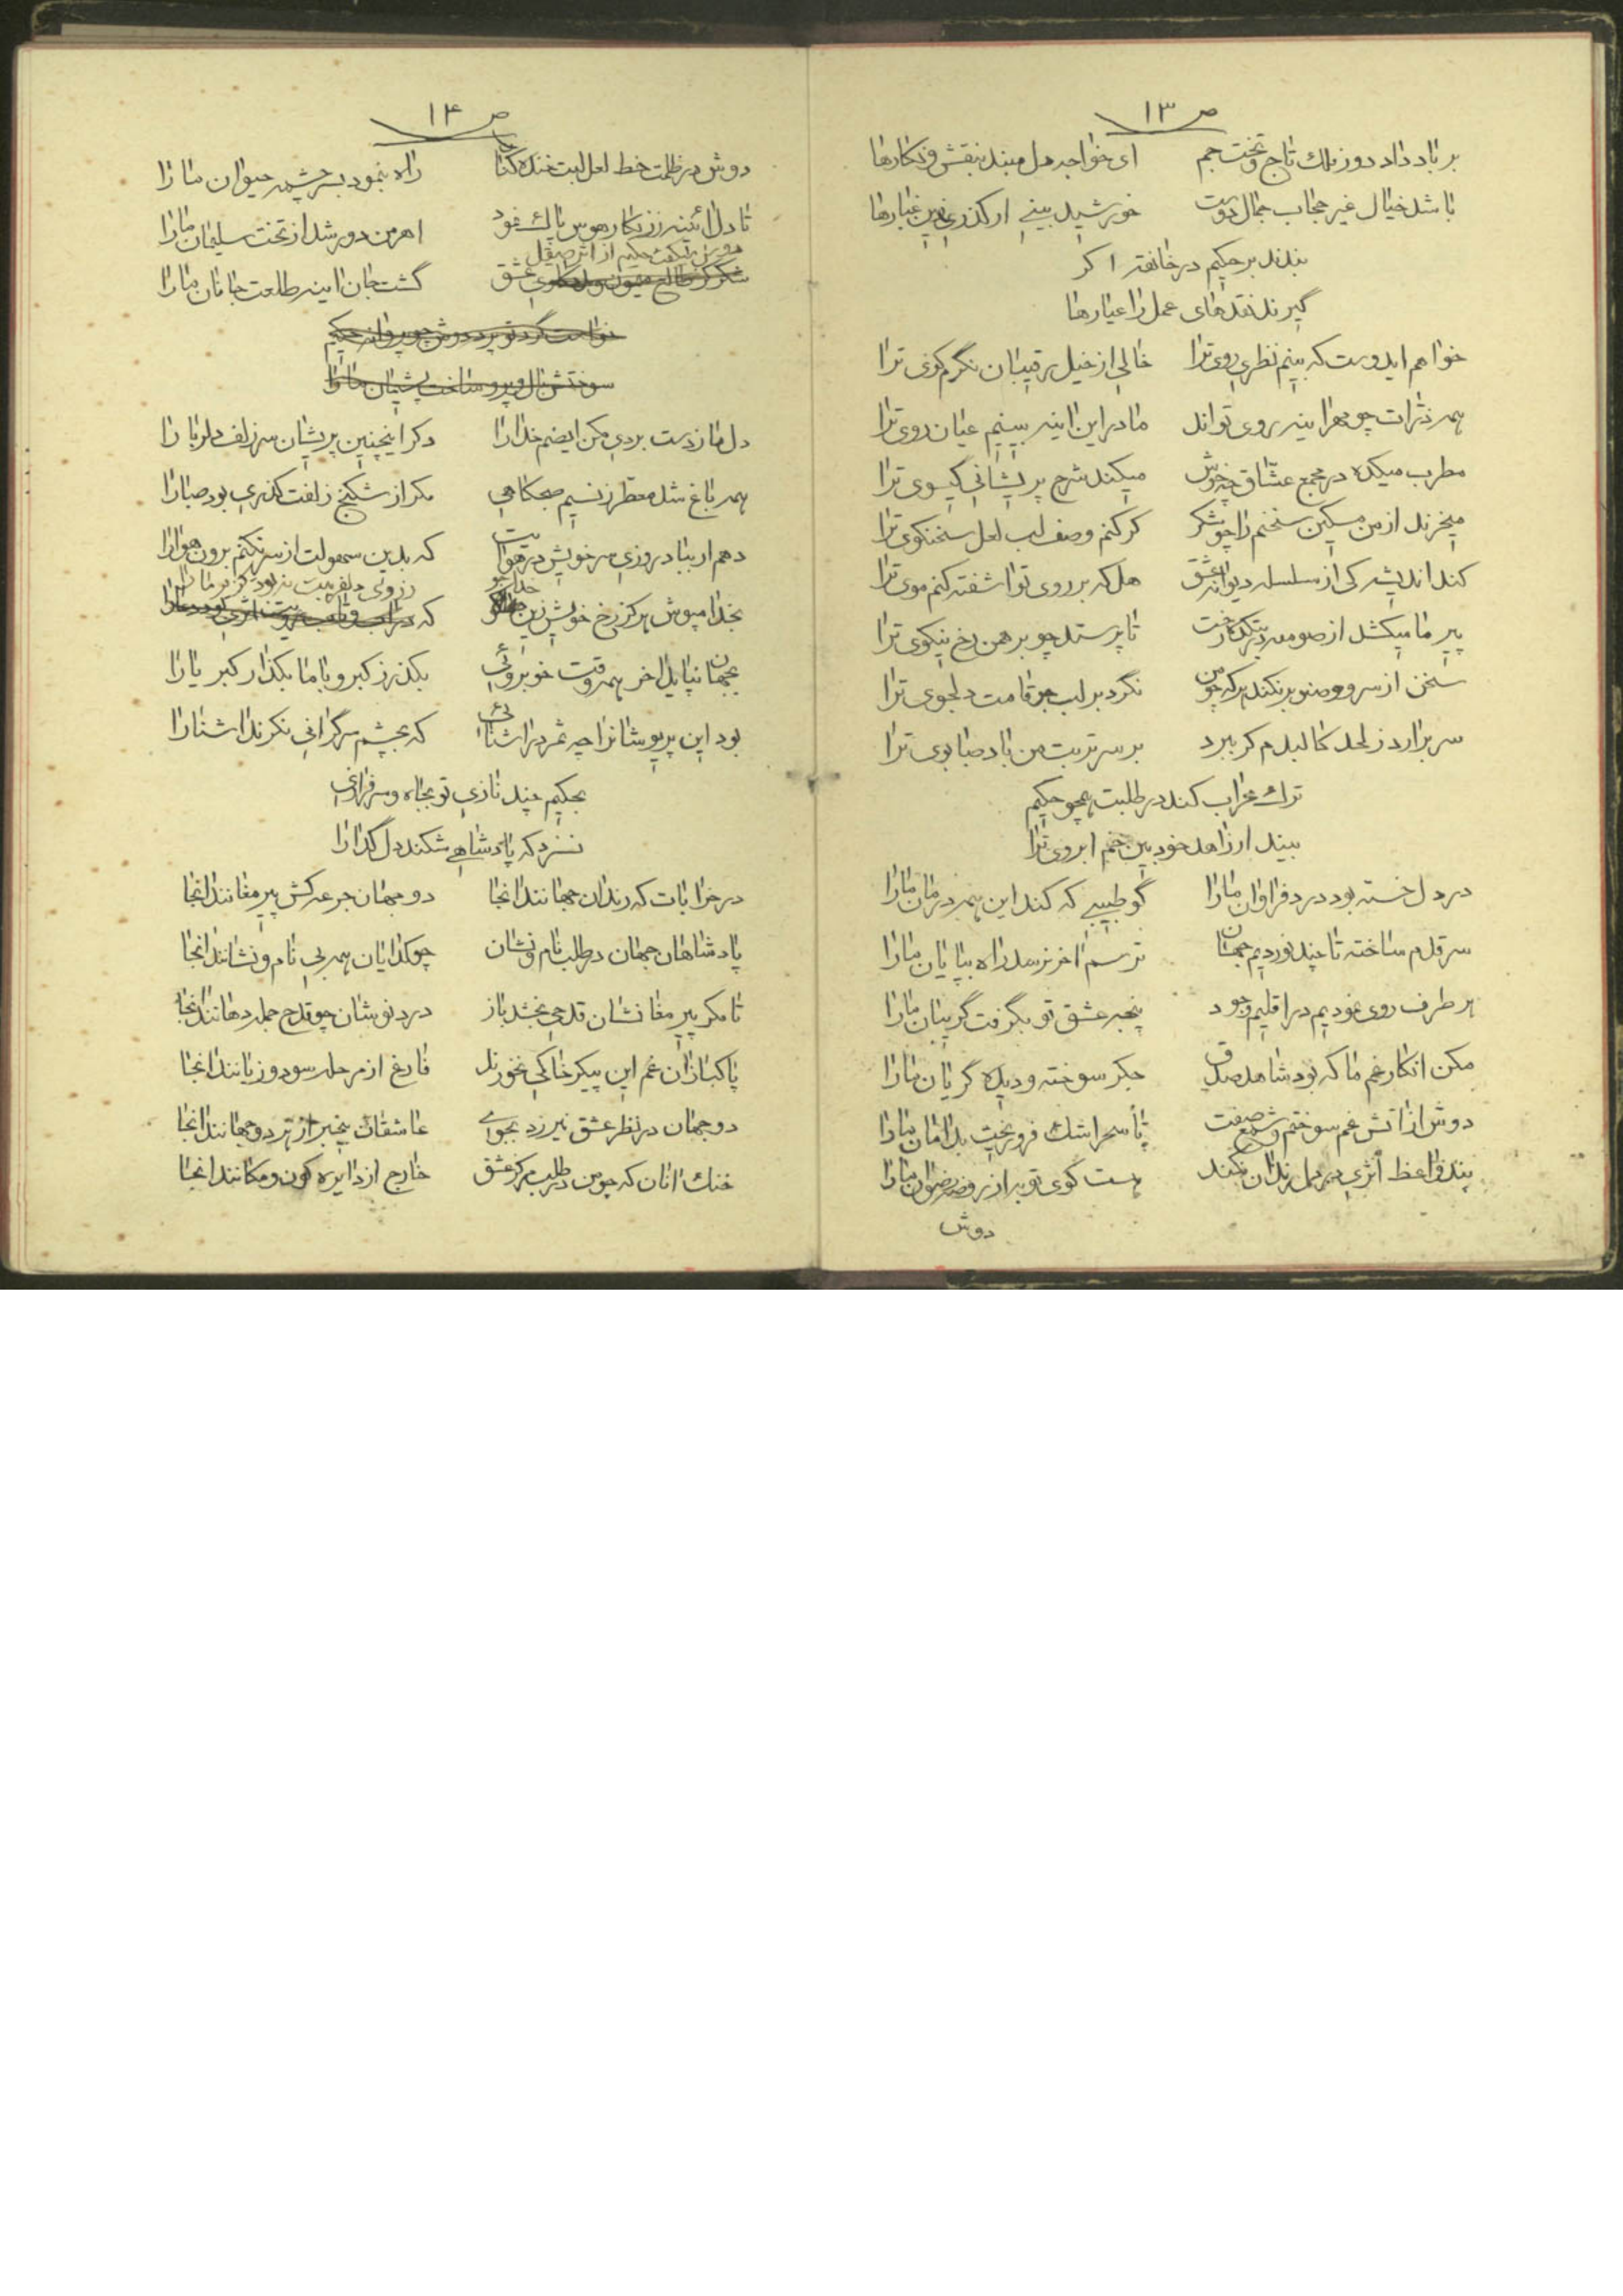 ص ۱۳
بر باد داد دور فلك تاج و تخت جم ای خواجه دل مبند بنقش و نكارها
باشد خیال غیر حجاب جمال دوست خورشید بینی ار كذری زین غبارها
بندند بر حكیم در خانقه اكر
گیرند نقدهای عمل را عیارها
خواهم ایدوست كه بینم نظری روی ترا خالی از خیل رقیبان نگرم كوی ترا
همه ذرات جو اینه روی تواند ما در این اینه بینیم عیان روی ترا
مطرب میكده در مجمع عشاق چه خوش میكند شرح پریشانی گیسوی ترا
میخرند از من مسكین سخنم را چو شكر كر كنم وصف لب لعل سخنكوی ترا
كند اندیشه كی از سلسله دیوانه عشق هل كه بر روی تو اشفته كنم موی ترا
پیر ما میكشد از صومعه در بتكده رخت تا پرستد چو برهمن رخ نیكوی ترا
سخن از سرو و صنوبر نكند هركه چو من نگرد بر لب جو قامت دلجوی ترا
سر برارد ز لحد كالبدم كر ببرد بر سر تربت من باد صبا بوی ترا
ترك محراب كند در طلبت همچو حكیم
بیند ار زاهد خودبین خم ابروی ترا
در دل خسته بود درد فراوان ما را گو طبیبی كه كند این همه درمان ما را
سر قدم ساخته تا چند نوردیم جهان ترسم اخر نرسد راه بپایان ما را
هر طرف روی نمودیم در اقلیم وجود پنجه عشق تو بگرفت گریبان ما را
مكن انكار غم ما كه بود شاهد صدق جكر سوخته و دیده گریان ما را
دوش از اتش غم سوختم و شمع صفت تا سحر اشك فرو ریخت بدامان ما را
پند واعظ اثری در دل رندان نكند هست كوی تو به از روضه رضوان ما را
دوش
ص ۱۴
دوش در ظلمت خط لعل لبت خنده كنان راه بنمود بسرچشمه حیوان ما را
تا دل ائینه ز زنكار هوس پاك نمود اهرمن دور شد از تخت سلیمان ما را
دوش میكفت حكیم از اثر صیقل عشق گشت جان اینه طلعت جانان ما را
خواست گرد تو پرد دوش چو پروانه حكیم
سوختش بال و پر و ساخت پشیمان ما را
دل ما ز دست بردی مكن ایصنم خدا را دكر اینچنین پریشان سر زلف دلربا را
همه باغ شد معطر ز نسیم صبحكاهی مكر از شكنج زلفت كذری بود صبا را
دهم ار بباد روزی سر خویش در هوایت كه بدین سهولت از سر نكنم برون هوا را
بخدا مپوش هركز رخ خویش زین خداجو كه
بجهان نپاید اخر همه وقت خوبروئی بكذر ز كبر و با ما بكذار كبریا را
بود این پریوشانرا چه ثمر در اشنائی كه بچشم سركرانی نكرند اشنا را
بحكیم چند نازی تو بجاه و سرفرازی
نسزد كه پادشاهی شكند دل گدا را
در خرابات كه رندان جهانند انجا دو جهان جرعه كش پیر مغانند انجا
پادشاهان جهان در طلب نام و نشان چو كدایان همه بی نام و نشانند انجا
تا مكر پیر مغانشان قدحی بخشد باز دردنوشان چو قدح جمله دهانند انجا
پاكبازان غم این پیكر خاكی نخورند فارغ از مرحله سود و زیانند انجا
دو جهان در نظر عشق نیرزد بجوی عاشقان بیخبر از هر دو جهانند انجا
خنك انان كه چو من در طلب مركز عشق خارج از دایره كون و مكانند انجا